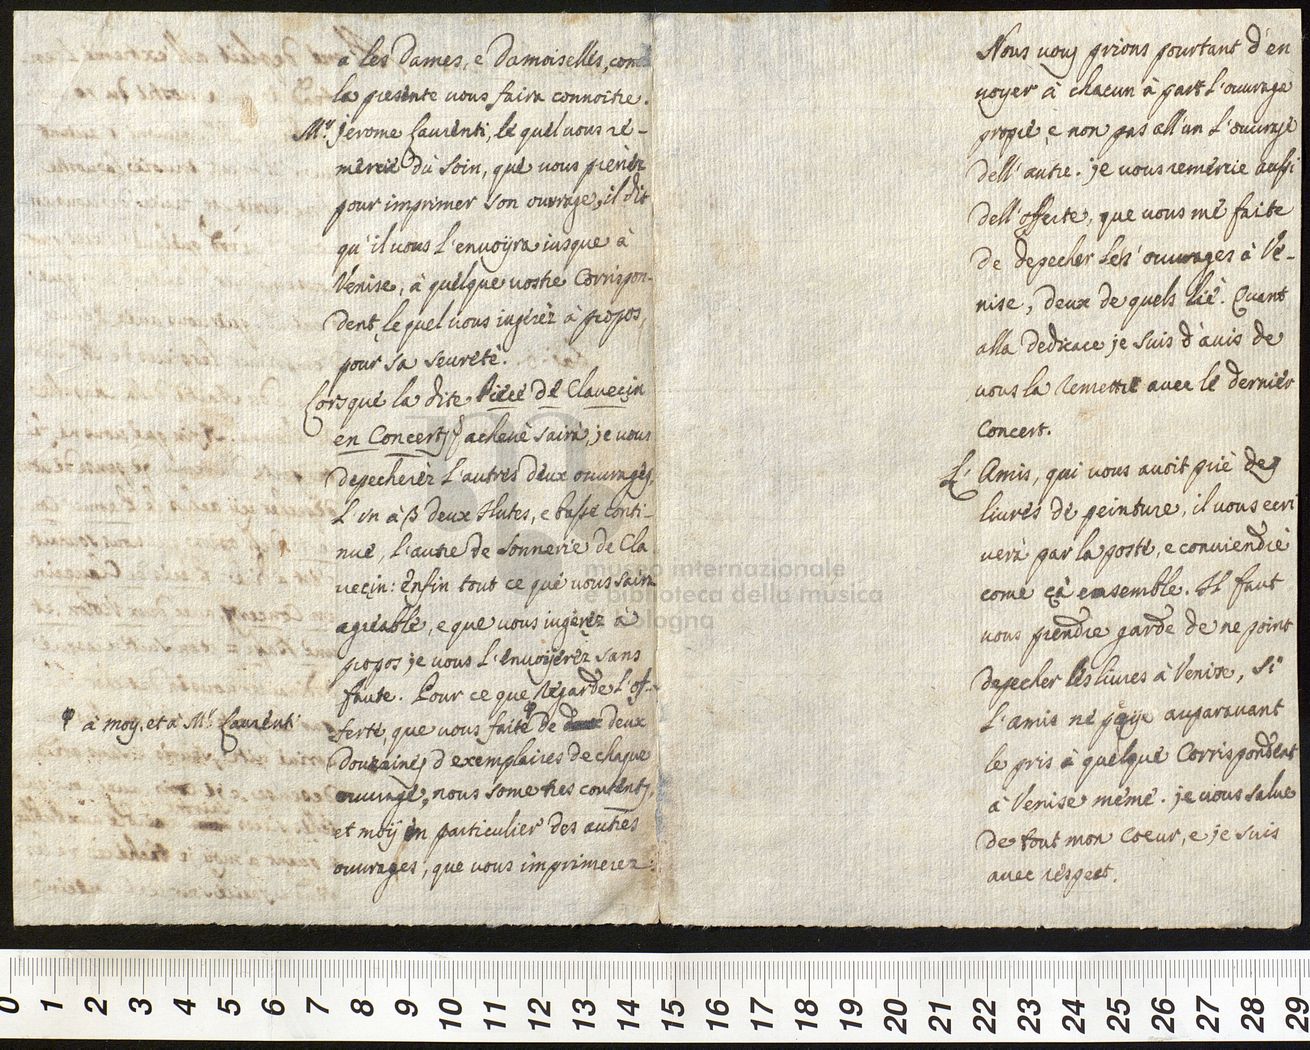 a les Dames, e Damoiselles, com
la presente vous faira connoitre.
Mr. Jerome Laurenti, le quel vous re-
mercie du soin, que vous prenez
pour imprimer son ouvrage, il dit
qu'il vous l'envoÿra iusque à
Venise, à quelque vostre Corrispon-
dent le quel vous iugérèz à propos,
pour sa seureté.
Lorsque la dite Piéce de Clavecin
en Concerts achevé saira, je vous
depecherèz l'autres deux ouvrages,
L'un à 3 deux Flutes, e basse conti-
nue, l'autre de Sonnerie de Cla
vecin: Enfin tout ce que vous saira
agréable, e que vous iugerèz à
propos je vous l'envoijerèz sans
faute. Pour ce que regarde l'of-
ferte, que vous faite de deux
φ à moy, et à Mr. Laurenti
douzaines d'exemplaires de chaque
ouvrage, nous some tres contents,
et moÿ en particulier des autres
ouvrages, que vous imprimerez:
Nous vous prions pourtant d'en
voyer à chacun à part l'ouvrage
propre, e non pas all'un l'ouvrage
dell'autre. je vous remercie aussi
dell'offerte, que vous me faite
de depecher les ouvrages à Ve-
nise, deux de quels lié. Quant
alla dedicace je suis d'avis de
vous la remettre avec le dernier
Concert.
L'Amis, qui vous avoit prié des
livres de peinture, il vous ecri
verà par la poste, e conviendre
come çà ensemble. Il faut
vous prendre garde de ne point
depecher les livres à Venise, si
l'amis ne päye auparavant
le pris à quelque Corrispondent
à Venise méme. je vous salue
de tout mon Coeur, e je suis
avec réspect.
museo internazionale
e biblioteca della musica
di bologna
0 1 2 3 4 5 6 7 8 9 10 11 12 13 14 15 16 17 18 19 20 21 22 23 24 25 26 27 28 29